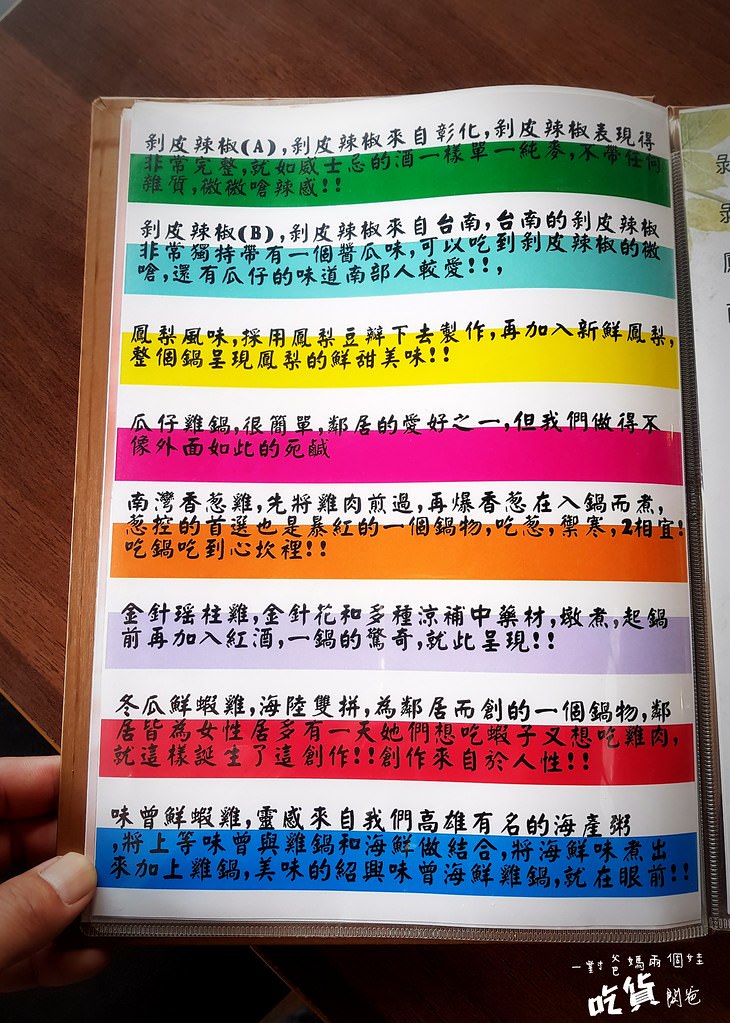 剝皮辣椒(A),剝皮辣椒來自彰化,剝皮辣椒表現得
非常完整,就如威士忌的酒一樣單一純麥,不帶任何
雜質,微微嗆辣感!!
剝皮辣椒(B),剝皮辣椒來自台南,台南的剝皮辣椒
非常獨特帶有一個醬瓜味,可以吃到剝皮辣椒的微
嗆,還有瓜仔的味道南部人較愛!!,
鳳梨風味,採用鳳梨豆瓣下去製作,再加入新鮮鳳梨,
整個鍋呈現鳳梨的鮮甜美味!!
瓜仔雞鍋,很簡單,鄰居的愛好之一,但我們做得不
像外面如此的死鹹
南灣香蔥雞,先將雞肉煎過,再爆香蔥在入鍋而煮,
蔥控的首選也是暴紅的一個鍋物,吃蔥,禦寒,2相宜!
吃鍋吃到心坎裡!!
金針瑤柱雞,金針花和多種涼補中藥材,燉煮,起鍋
前再加入紅酒,一鍋的驚奇,就此呈現!!
冬瓜鮮蝦雞,海陸雙拼,為鄰居而創的一個鍋物,鄰
居皆為女性居多有一天她們想吃蝦子又想吃雞肉,
就這樣誕生了這創作!!創作來自於人性!!
味曾鮮蝦雞,靈感來自我們高雄有名的海產粥
,將上等味曾與雞鍋和海鮮做結合,將海鮮味煮出
來加上雞鍋,美味的紹興味曾海鮮雞鍋,就在眼前!!
一對爸媽兩個娃
吃貨